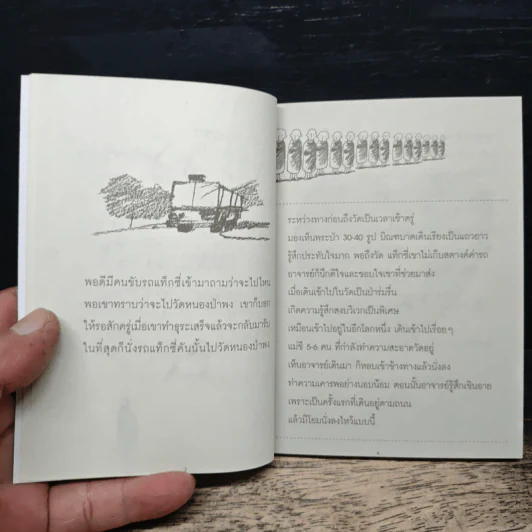 พอดีมีคนขับรถแท็กซี่เข้ามาถามว่าจะไปไหน
พอเขาทราบว่าจะไปวัดหนองป่าพง เขาก็บอก
ให้รอสักครู่เมื่อเขาทำธุระเสร็จแล้วจะกลับมารับ
ในที่สุดก็นั่งรถแท็กซี่คันนั้นไปวัดหนองป่าพง
ระหว่างทางก่อนถึงวัดเป็นเวลาเช้าตรู่
มองเห็นพระป่า 30-40 รูป บิณฑบาตเดินเรียงเป็นแถวยาว
รู้สึกประทับใจมาก พอถึงวัด แท็กซี่เขาไม่เก็บสตางค์ค่ารถ
อาจารย์ก็นึกดีใจและขอบใจเขาที่ช่วยมาส่ง
เมื่อเดินเข้าไปในวัดเป็นป่าร่มรื่น
เกิดความรู้สึกสงบวิเวกเป็นพิเศษ
เหมือนเข้าไปอยู่ในอีกโลกหนึ่ง เดินเข้าไปเรื่อยๆ
แม่ชี 5-6 คน ที่กำลังทำความสะอาดวัดอยู่
เห็นอาจารย์เดินมา ก็หลบเข้าข้างทางแล้วนั่งลง
ทำความเคารพอย่างนอบน้อม ตอนนั้นอาจารย์รู้สึกเขินอาย
เพราะเป็นครั้งแรกที่เดินอยู่ตามถนน
แล้วมีโยมนั่งลงไหว้แบบนี้